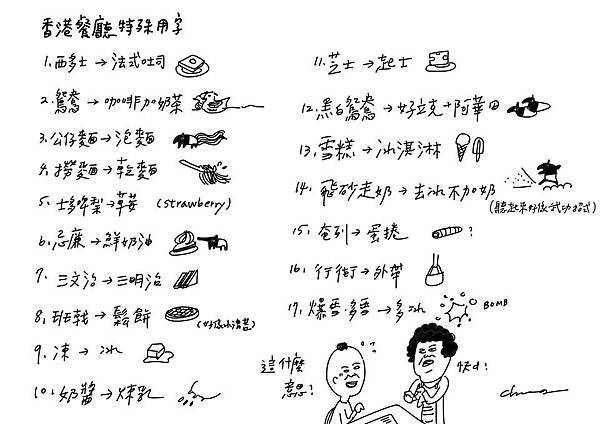 香港餐廳特殊用字
1.西多士→法式吐司
2.鴛鴦→咖啡加奶茶
3.公仔麵→泡麵
4.撈麵→乾麵
5.士多啤梨→草莓 (strawberry)
6.忌廉→鮮奶油
7.三文治→三明治
8.班戟→鬆餅
9.凍→冰
10.奶醬→煉乳
11.芝士→起士
12.黑白鴛鴦→好立克+阿華田
13.雪糕→冰淇淋
14.飛砂走奶→去冰不加奶
(聽起來好像武功招式)
15.奄列→蛋捲 ?
16.行街→外帶
17.爆雪.多雪→多冰 BOMB
這什麼
意思?
快d!